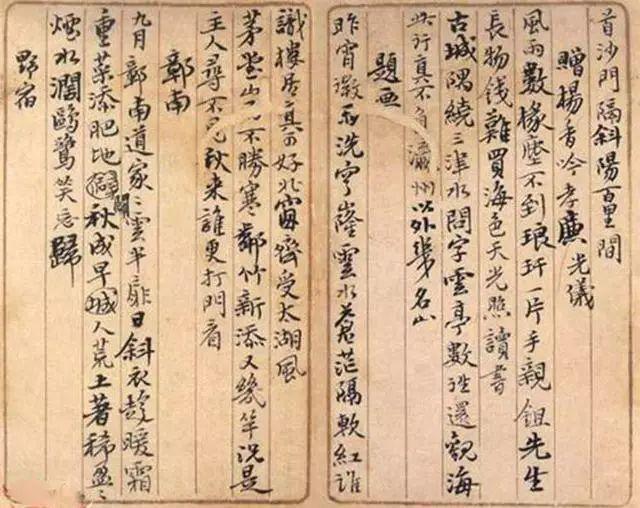 首沙門隔斜陽百里間
贈楊香吟孝廉光儀
風雨數椽塵不到琅玕一片手親鉏先生
長物錢難買海色天光照讀書
古城隅繞三津水問字雲亭數往還觀海
此行真不負瀛州以外幾名山
題画
昨宵澂雨洗穹窿雲水蒼茫隔軟紅誰
識樓居真可好北窗齊受太湖風
茅堂山不勝寒鄰竹新添又幾竿況是
主人尋不見秋來誰更打門看
郭南
九月郭南道家々雲半扉日斜衣趁暖霜
重菜添肥地闢秋成早城人荒土著稀盈々
煙水濶鷗鷺笑忘歸
野宿